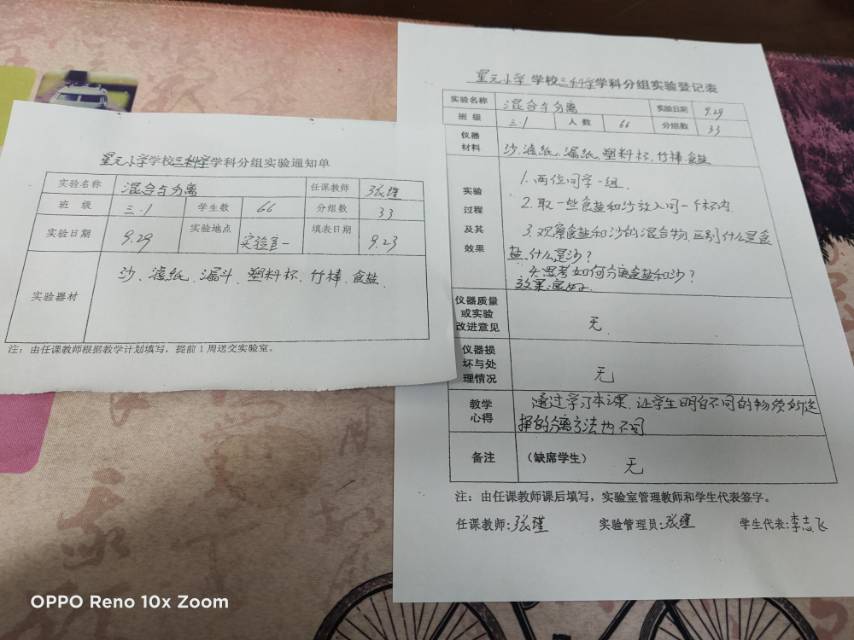 星元小学学校三科学学科分组实验通知单
实验名称 混合与分离 任课教师 张瑾
班 级 三.1 学生数 66 分组数 33
实验日期 9.29 实验地点 实验室一 填表日期 9.23
实验器材 沙、滤纸、漏斗、塑料杯、竹棒、食盐
注：由任课教师根据教学计划填写，提前1周送交实验室。
星元小学学校三科学学科分组实验登记表
实验名称 混合与分离 实验日期 9.29
班 级 三.1 人 数 66 分组数 33
仪器材料 沙、滤纸、漏纸、塑料杯、竹棒、食盐
实验过程及其效果
1.两位同学一组.
2.取一些食盐和沙放入同一个杯内.
3.观察食盐和沙的混合物,区别什么是食
盐,什么是沙?
4.思考如何分离食盐和沙?
效果:
仪器质量或实验改进意见 无.
仪器损坏与处理情况 无
教学心得 通过学习本课,让学生明白不同的物质所选
择的分离方法也不同
备注 （缺席学生） 无
注：由任课教师课后填写，实验室管理教师和学生代表签字。
任课教师:张瑾 实验管理员:张瑾 学生代表:李志飞
OPPO Reno 10x Zoom